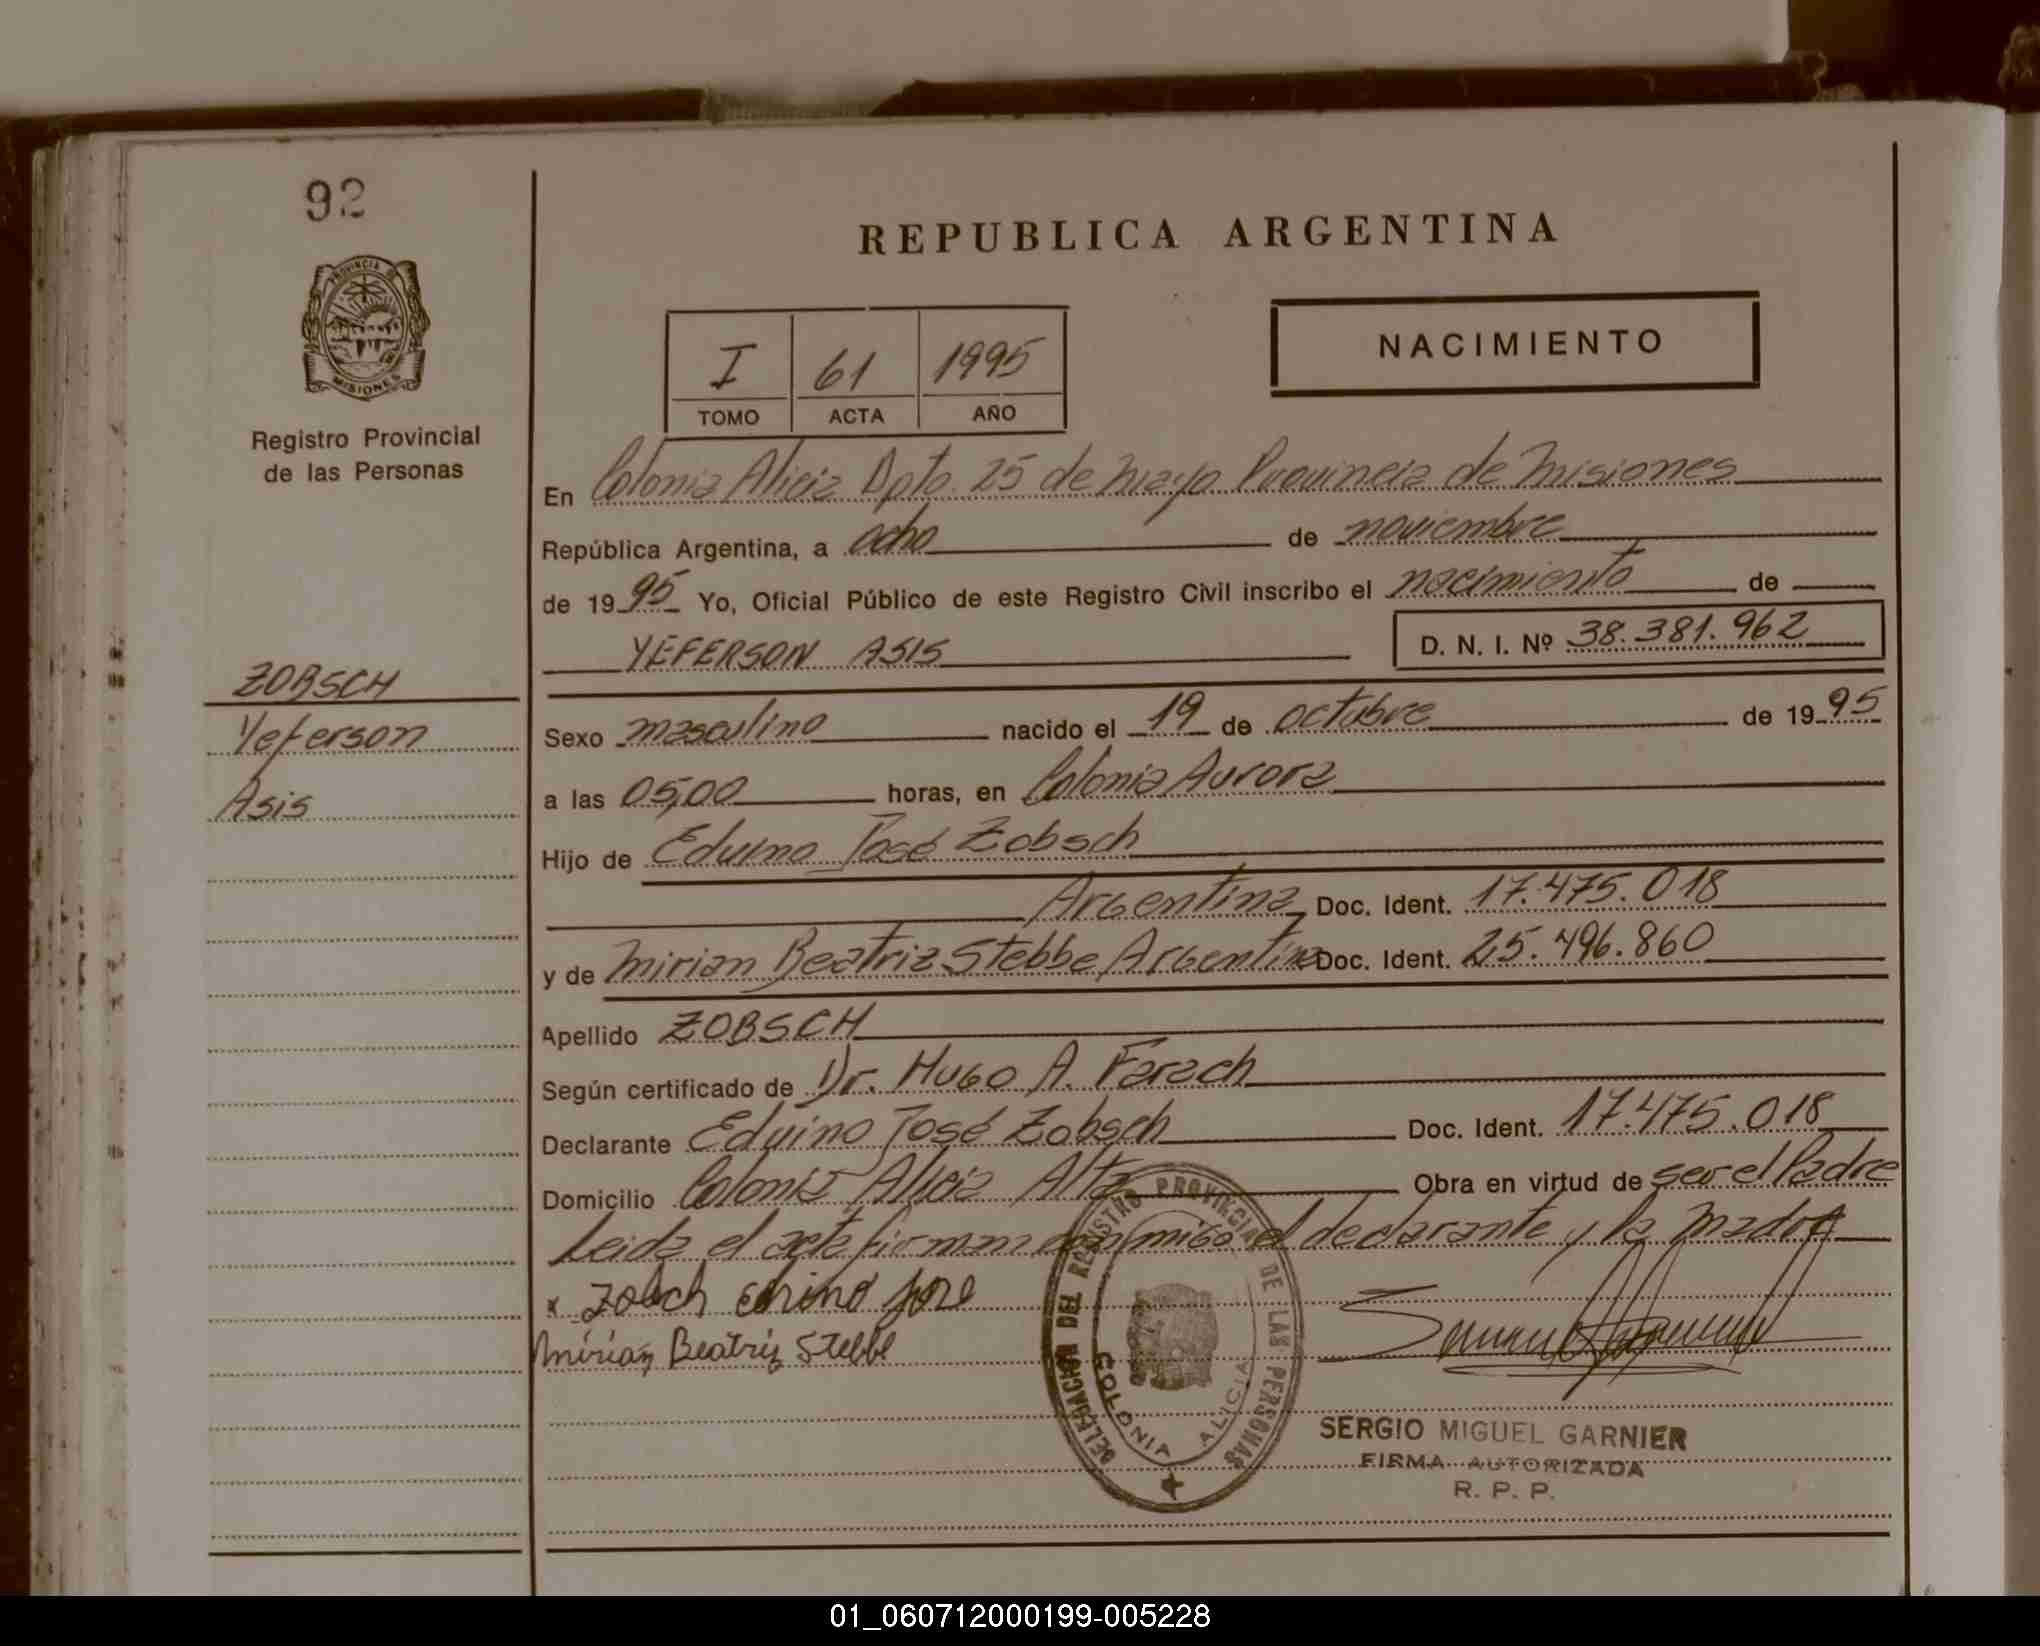 92
PROVINCIA DE
MISIONES
Registro Provincial
de las Personas
ZOBSCH
Yeferson
Asis
REPUBLICA ARGENTINA
NACIMIENTO
I 61 1995
TOMO ACTA AÑO
En Colonia Alicia Dpto. 25 de Mayo Provincia de Misiones
República Argentina, a ocho de noviembre
de 1995 Yo, Oficial Público de este Registro Civil inscribo el nacimiento de
YEFERSON ASIS D. N. I. Nº 38.381.962
Sexo masculino nacido el 19 de octubre de 1995
a las 05,00 horas, en Colonia Aurora
Hijo de Eduino José Zobsch
Argentina Doc. Ident. 17.475.018
y de Mirian Beatriz Stebbe Argentina Doc. Ident. 25.496.860
Apellido ZOBSCH
Según certificado de Dr. Hugo A. Farach
Declarante Eduino José Zobsch Doc. Ident. 17.475.018
Domicilio Colonia Alicia Alta Obra en virtud de ser el Padre
Leida el acta firman conmigo el declarante y la madre
x Zobch jose
Mirian Beatriz Stebbe
DELEGACION DEL REGISTRO PROVINCIAL DE LAS PERSONAS
COLONIA ALICIA
SERGIO MIGUEL GARNIER
FIRMA AUTORIZADA
R. P. P.
01_060712000199-005228